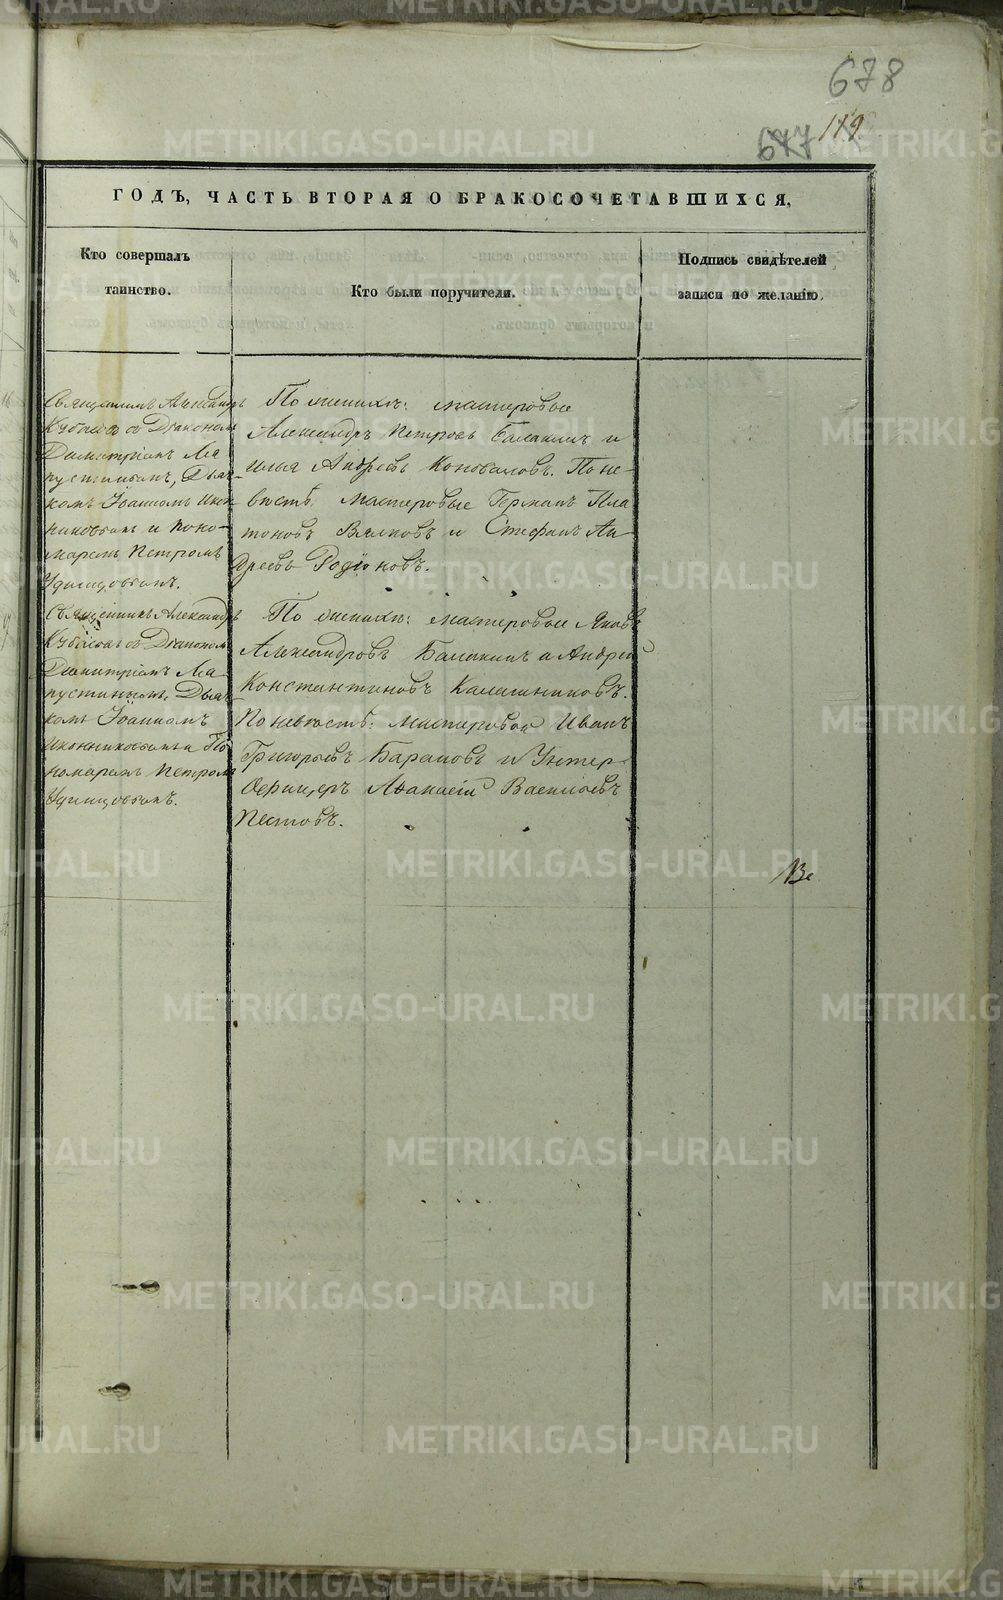 678
677 119
ГОДЪ, ЧАСТЬ ВТОРАЯ О БРАКОСОЧЕТАВШИХСЯ,
Кто совершалъ
таинство.
Кто были поручители.
Подпись свидѣтелей
записи по желанію.
Священникъ Александръ
Кубасовъ съ Діакономъ
Димитріемъ Ла
пустинымъ, Дьяч-
комъ Іоанномъ Икон
никовымъ и Поно-
маремъ Петромъ
Удинцовымъ.
По женихѣ: мастеровые
Александръ Петровъ Балакинъ и
Илья Андреевъ Коноваловъ. По не-
вѣстѣ, мастеровые Германъ Пла
тоновъ Вялковъ и Стефанъ Ан
дреевъ Родіоновъ.
Священникъ Александръ
Кубасовъ съ Діакономъ
Димитріемъ Ла
пустинымъ, Дьяч
комъ Іоанномъ
Иконниковымъ и По
номаремъ Петромъ
Удинцовымъ.
По женихѣ: мастеровые Яковъ
Александровъ Балакинъ и Андрей
Константиновъ Калашниковъ.
По невѣстѣ: мастеровой Иванъ
Григорьевъ Барановъ и Унтер-
Офицеръ Аѳанасій Васильевъ
Пестовъ.
METRIKI.GASO-URAL.RU